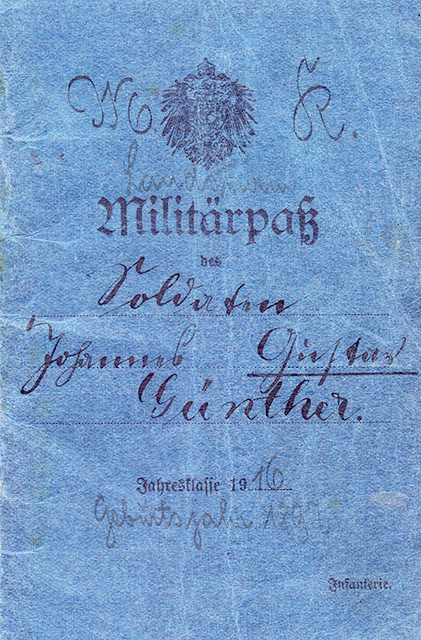 K.
Militärpaß
des
Soldaten
Johannes Gustav
Günther.
Jahresklasse 1916
Geburtsjahr 1897
Infanterie.